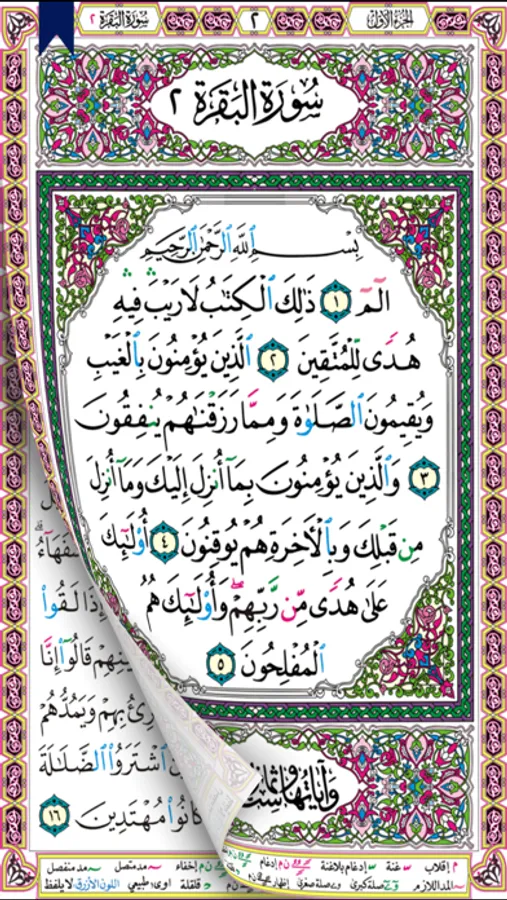 سُورَةُ البَقَرَةِ ٢
٢
الجُزءُ الأَوَّلُ
سُورَةُ البَقَرَةِ ٢
بِسْمِ اللَّهِ الرَّحْمَٰنِ الرَّحِيمِ
الٓمٓ ١ ذَٰلِكَ الْكِتَٰبُ لَا رَيْبَ فِيهِ
هُدًى لِّلْمُتَّقِينَ ٢ الَّذِينَ يُؤْمِنُونَ بِالْغَيْبِ
وَيُقِيمُونَ الصَّلَوٰةَ وَمِمَّا رَزَقْنَٰهُمْ يُنفِقُونَ
٣ وَالَّذِينَ يُؤْمِنُونَ بِمَآ أُنزِلَ إِلَيْكَ وَمَآ أُنزِلَ
مِن قَبْلِكَ وَبِالْآخِرَةِ هُمْ يُوقِنُونَ ٤ أُوْلَٰٓئِكَ
عَلَىٰ هُدًى مِّن رَّبِّهِمْ ۖ وَأُوْلَٰٓئِكَ هُمُ
الْمُفْلِحُونَ ٥
سُّفَهَآءُ ۗ
إِذَا لَقُوا
قَالُوٓا إِنَّا
وَيَمُدُّهُمْ
اشْتَرَوُا الضَّلَٰلَةَ
كَانُوا مُهْتَدِينَ ١٦
وَآيَاتُهَا
م إقلاب غنة إدغام بلاغنة إدغام إخفاء مد متصل مد منفصل
المد اللازم صلة كبرى وے صلة صغرى إظهار قلقلة اوى: طبيعي اللون الأزرق لا يلفظ